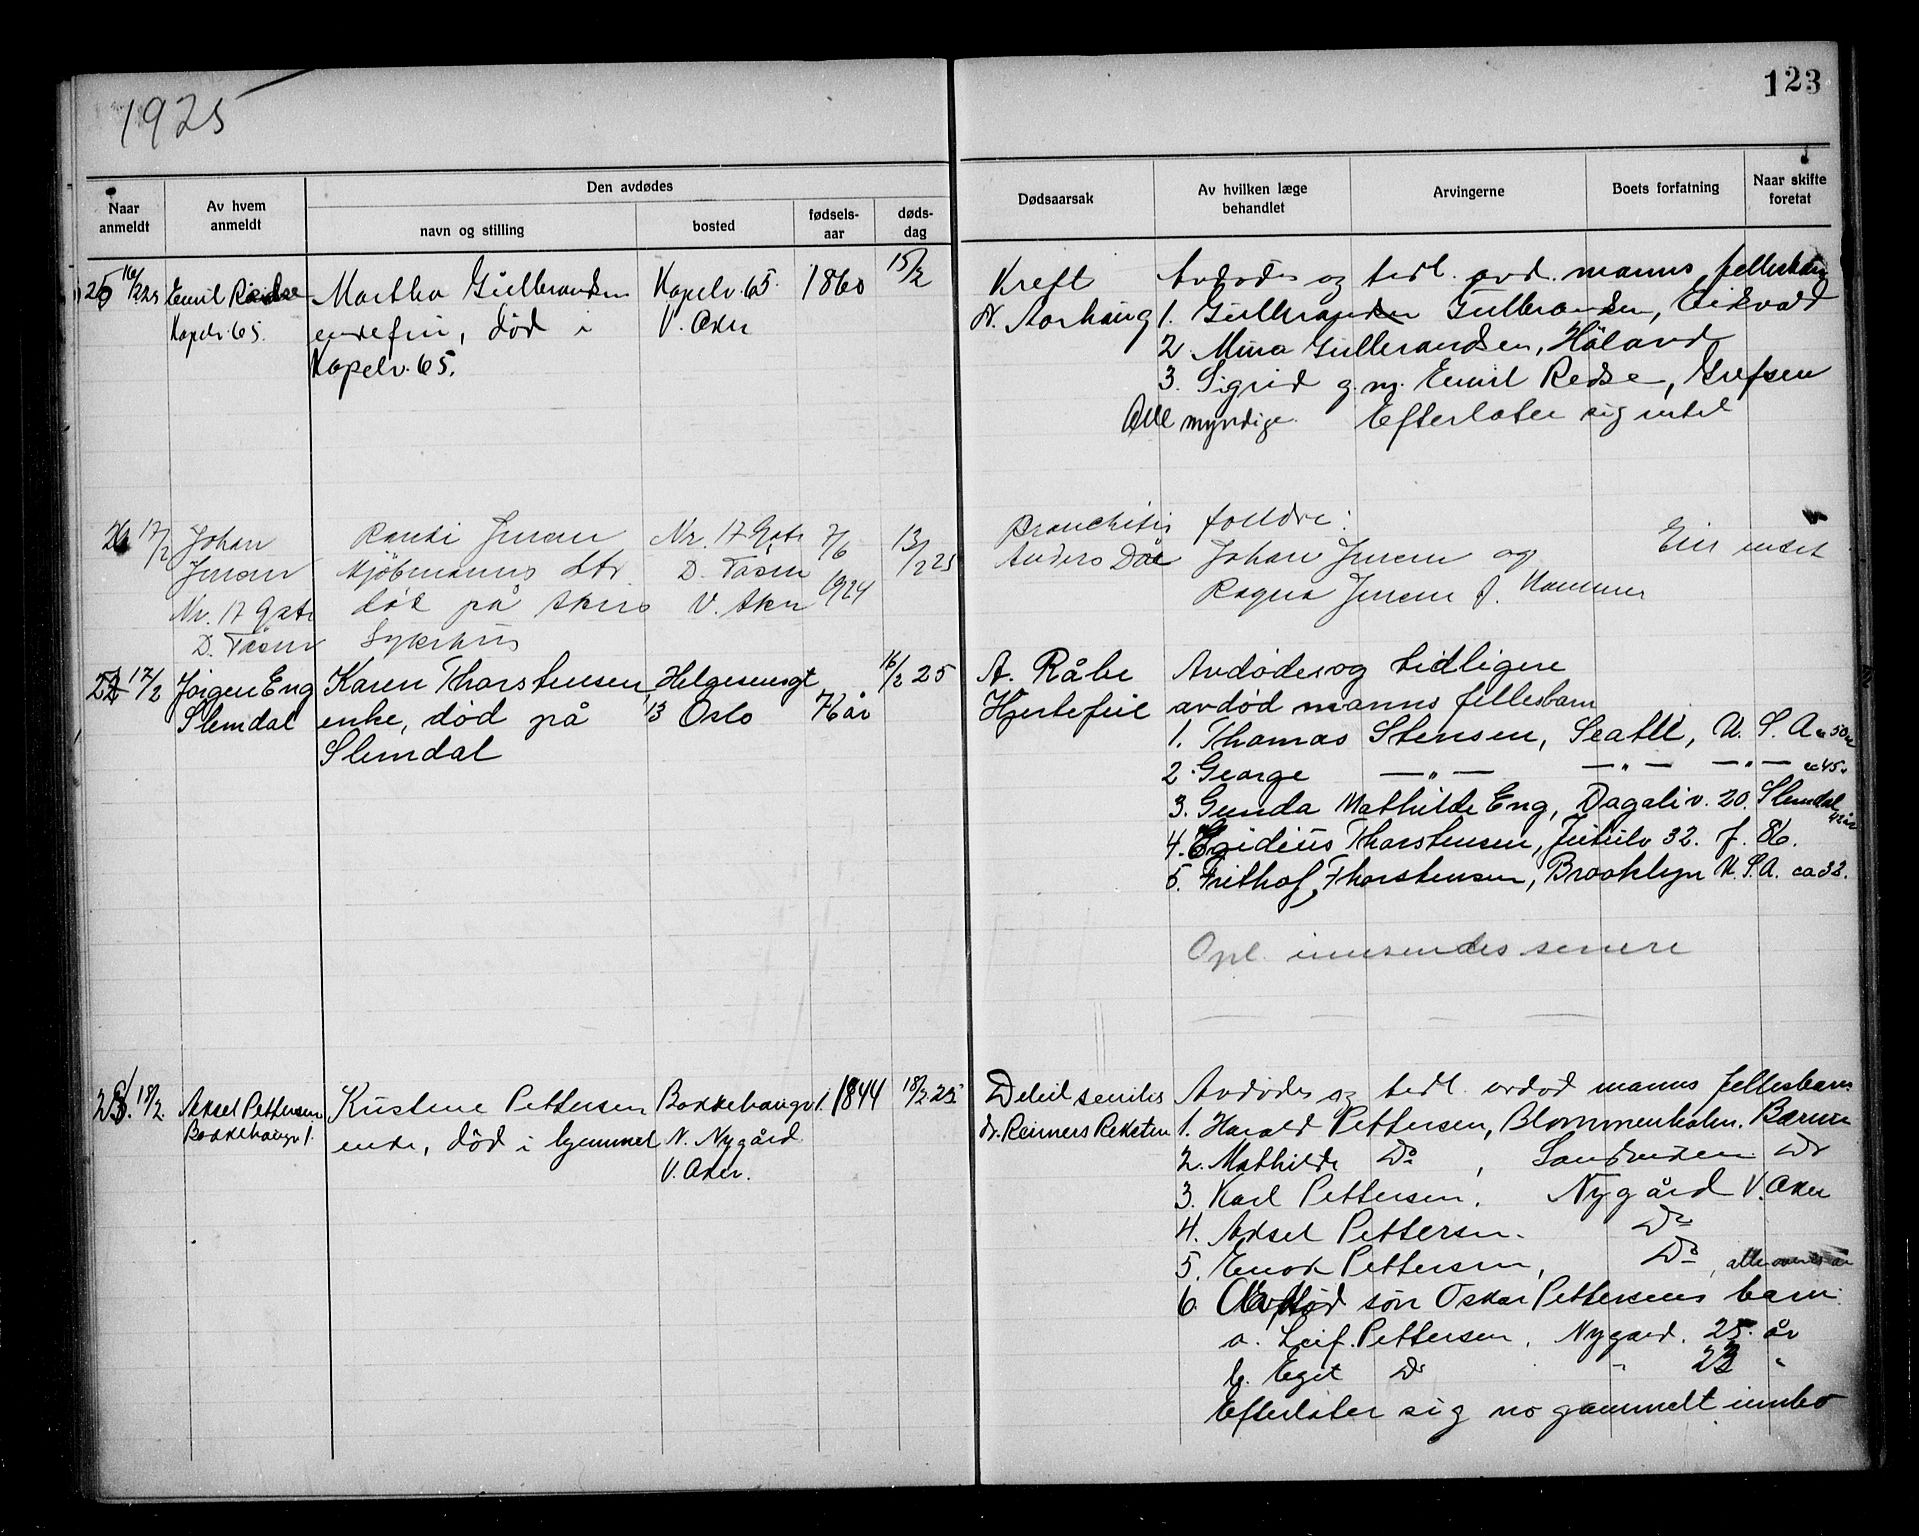 1925
123
Naar anmeldt
Av hvem anmeldt
Den avdødes
navn og stilling
bosted
fødsels-aar
døds-dag
Dødsaarsak
Av hvilken læge behandlet
Arvingerne
Boets forfatning
Naar skifte foretat
25 16/2 25
Emil
Kapelv. 65.
Martha Gulbrandsen
enkefru, død i
Kapelv. 65.
Kapelv. 65.
V. Aker
1860
15/2
Kreft
dr. Aarhaug
Avdødes og tidl. avd. manns fellesbarn
1. Gulbrandsen, Eidsvold
2. Mina Gulbrandsen, Høland
3. Sigrid g.m. Emil Redse, Grefsen
Alle myndige. Efterlater sig intet
26 17/2
Johan
Jensen
Nr. 17 Gate
D. Tåsen
Randi Jensen
kjøbmanns dtr.
død på Akers
Sykehus
Nr. 17 Gate
D. Tåsen
V. Aker
7/6
1924
13/2 25
Bronchitis
Anders Dåe
foreldre:
Johan Jensen og
Ragna Jensen f. Hammer
Eier intet
17/2
Jørgen Eng
Slemdal
Karen Thorstensen
enke, død på
Slemdal
Helgesensgt
13 Oslo
76 år
16/2 25
A. Råbe
Hjertefeil
Avdødes og tidligere
avdød manns fellesbarn
1. Thomas Stensen, Seattl, U. S. A. 50
2. George —"— —"— —"— ca 45
3. Gunda Mathilde Eng, Dagaliv. 20. Slemdal 42 år
4. Egidius Thorstensen, 32. f. 86.
5. Frithof Thorstensen, Brooklyn U.S.A. ca 32.
Opl. innsendes senere
18/2
Aksel Pettersen
Bakkehaugv 1.
Kristene Pettersen
enke, død i hjemmet
Bakkehaugv 1.
N. Nygård
V. Aker.
1844
18/2 25
Debil senilis
dr. Reimers
Avdødes og tidl. avdød manns fellesbarn
1. Harald Pettersen, Blommenholm. Bærum
2. Mathilde Do, Sandviken Do
3. Karl Pettersen, Nygård V. Aker
4. Aksel Pettersen. Do
5. Enok Pettersen, Do, alle
6. Avdød søn Oskar Pettersens barn:
a. Leif. Pettersen, Nygård. 25. år
b. Egil Do " 23 "
Efterlater sig no gammelt innbo